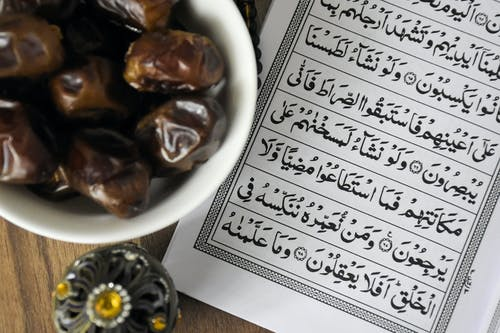 اَلْيَوْمَ
اَيْدِيهِمْ وَتَشْهَدُ اَرْجُلُهُمْ بِمَا
يَكْسِبُونَ ۝٦٥ وَلَوْ نَشَٓاءُ لَطَمَسْنَا
عَلٰٓى اَعْيُنِهِمْ فَاسْتَبَقُوا الصِّرَاطَ فَاَنّٰى
يُبْصِرُونَ ۝٦٦ وَلَوْ نَشَٓاءُ لَمَسَخْنٰهُمْ عَلٰى
مَكَانَتِهِمْ فَمَا اسْتَطَاعُوا مُضِيًّا وَلَا
يَرْجِعُونَ ۝٦٧ وَمَنْ نُعَمِّرْهُ نُنَكِّسْهُ فِي
الْخَلْقِ اَفَلَا يَعْقِلُونَ ۝٦٨ وَمَا عَلَّمْنٰهُ